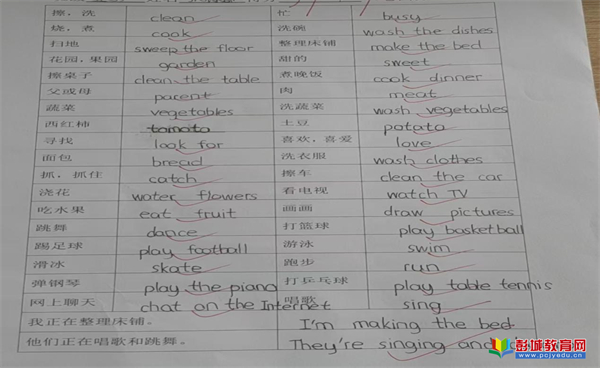 擦，洗 clean 忙 busy
烧，煮 cook 洗碗 wash the dishes
扫地 sweep the floor 整理床铺 make the bed
花园，果园 garden 甜的 sweet
擦桌子 clean the table 煮晚饭 cook dinner
父或母 parent 肉 meat
蔬菜 vegetables 洗蔬菜 wash vegetables
西红柿 tomato 土豆 potato
寻找 look for 喜欢，喜爱 love
面包 bread 洗衣服 wash clothes
抓，抓住 catch 擦车 clean the car
浇花 water flowers 看电视 watch TV
吃水果 eat fruit 画画 draw pictures
跳舞 dance 打篮球 play basketball
踢足球 play football 游泳 swim
滑冰 skate 跑步 run
弹钢琴 play the piano 打乒乓球 play table tennis
网上聊天 chat on the Internet 唱歌 sing
我正在整理床铺。 I'm making the bed.
他们正在唱歌和跳舞。 They're singing and
彭城教育网
www.pcjyedu.cn